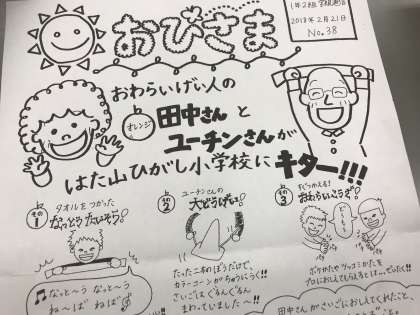 おひさま
1年2組 学級通信
2018年2月21日
No.38
おわらいげい人の
オレンジ
田中さんと
ユーチンさんが
はた山ひがし小学校に キター!!!
その1
タオルをつかった
なっとうたいそう!
その2
ユーチンさんの
大どうげい!
その3
すぐつかえる!
おわらいこうざ!
なっと〜う なっと〜う
ね〜ば ねばぁ
たった二本のぼうだけで、
カラーコーンがちゅうにうく!!
さいごはぐるんぐるん
まわっていました〜!!
ボケかたやツッコミかたを
プロにおしえてもらえるとは…ぜいたく!!
田中さんがさいごにおしえてくれたこと、